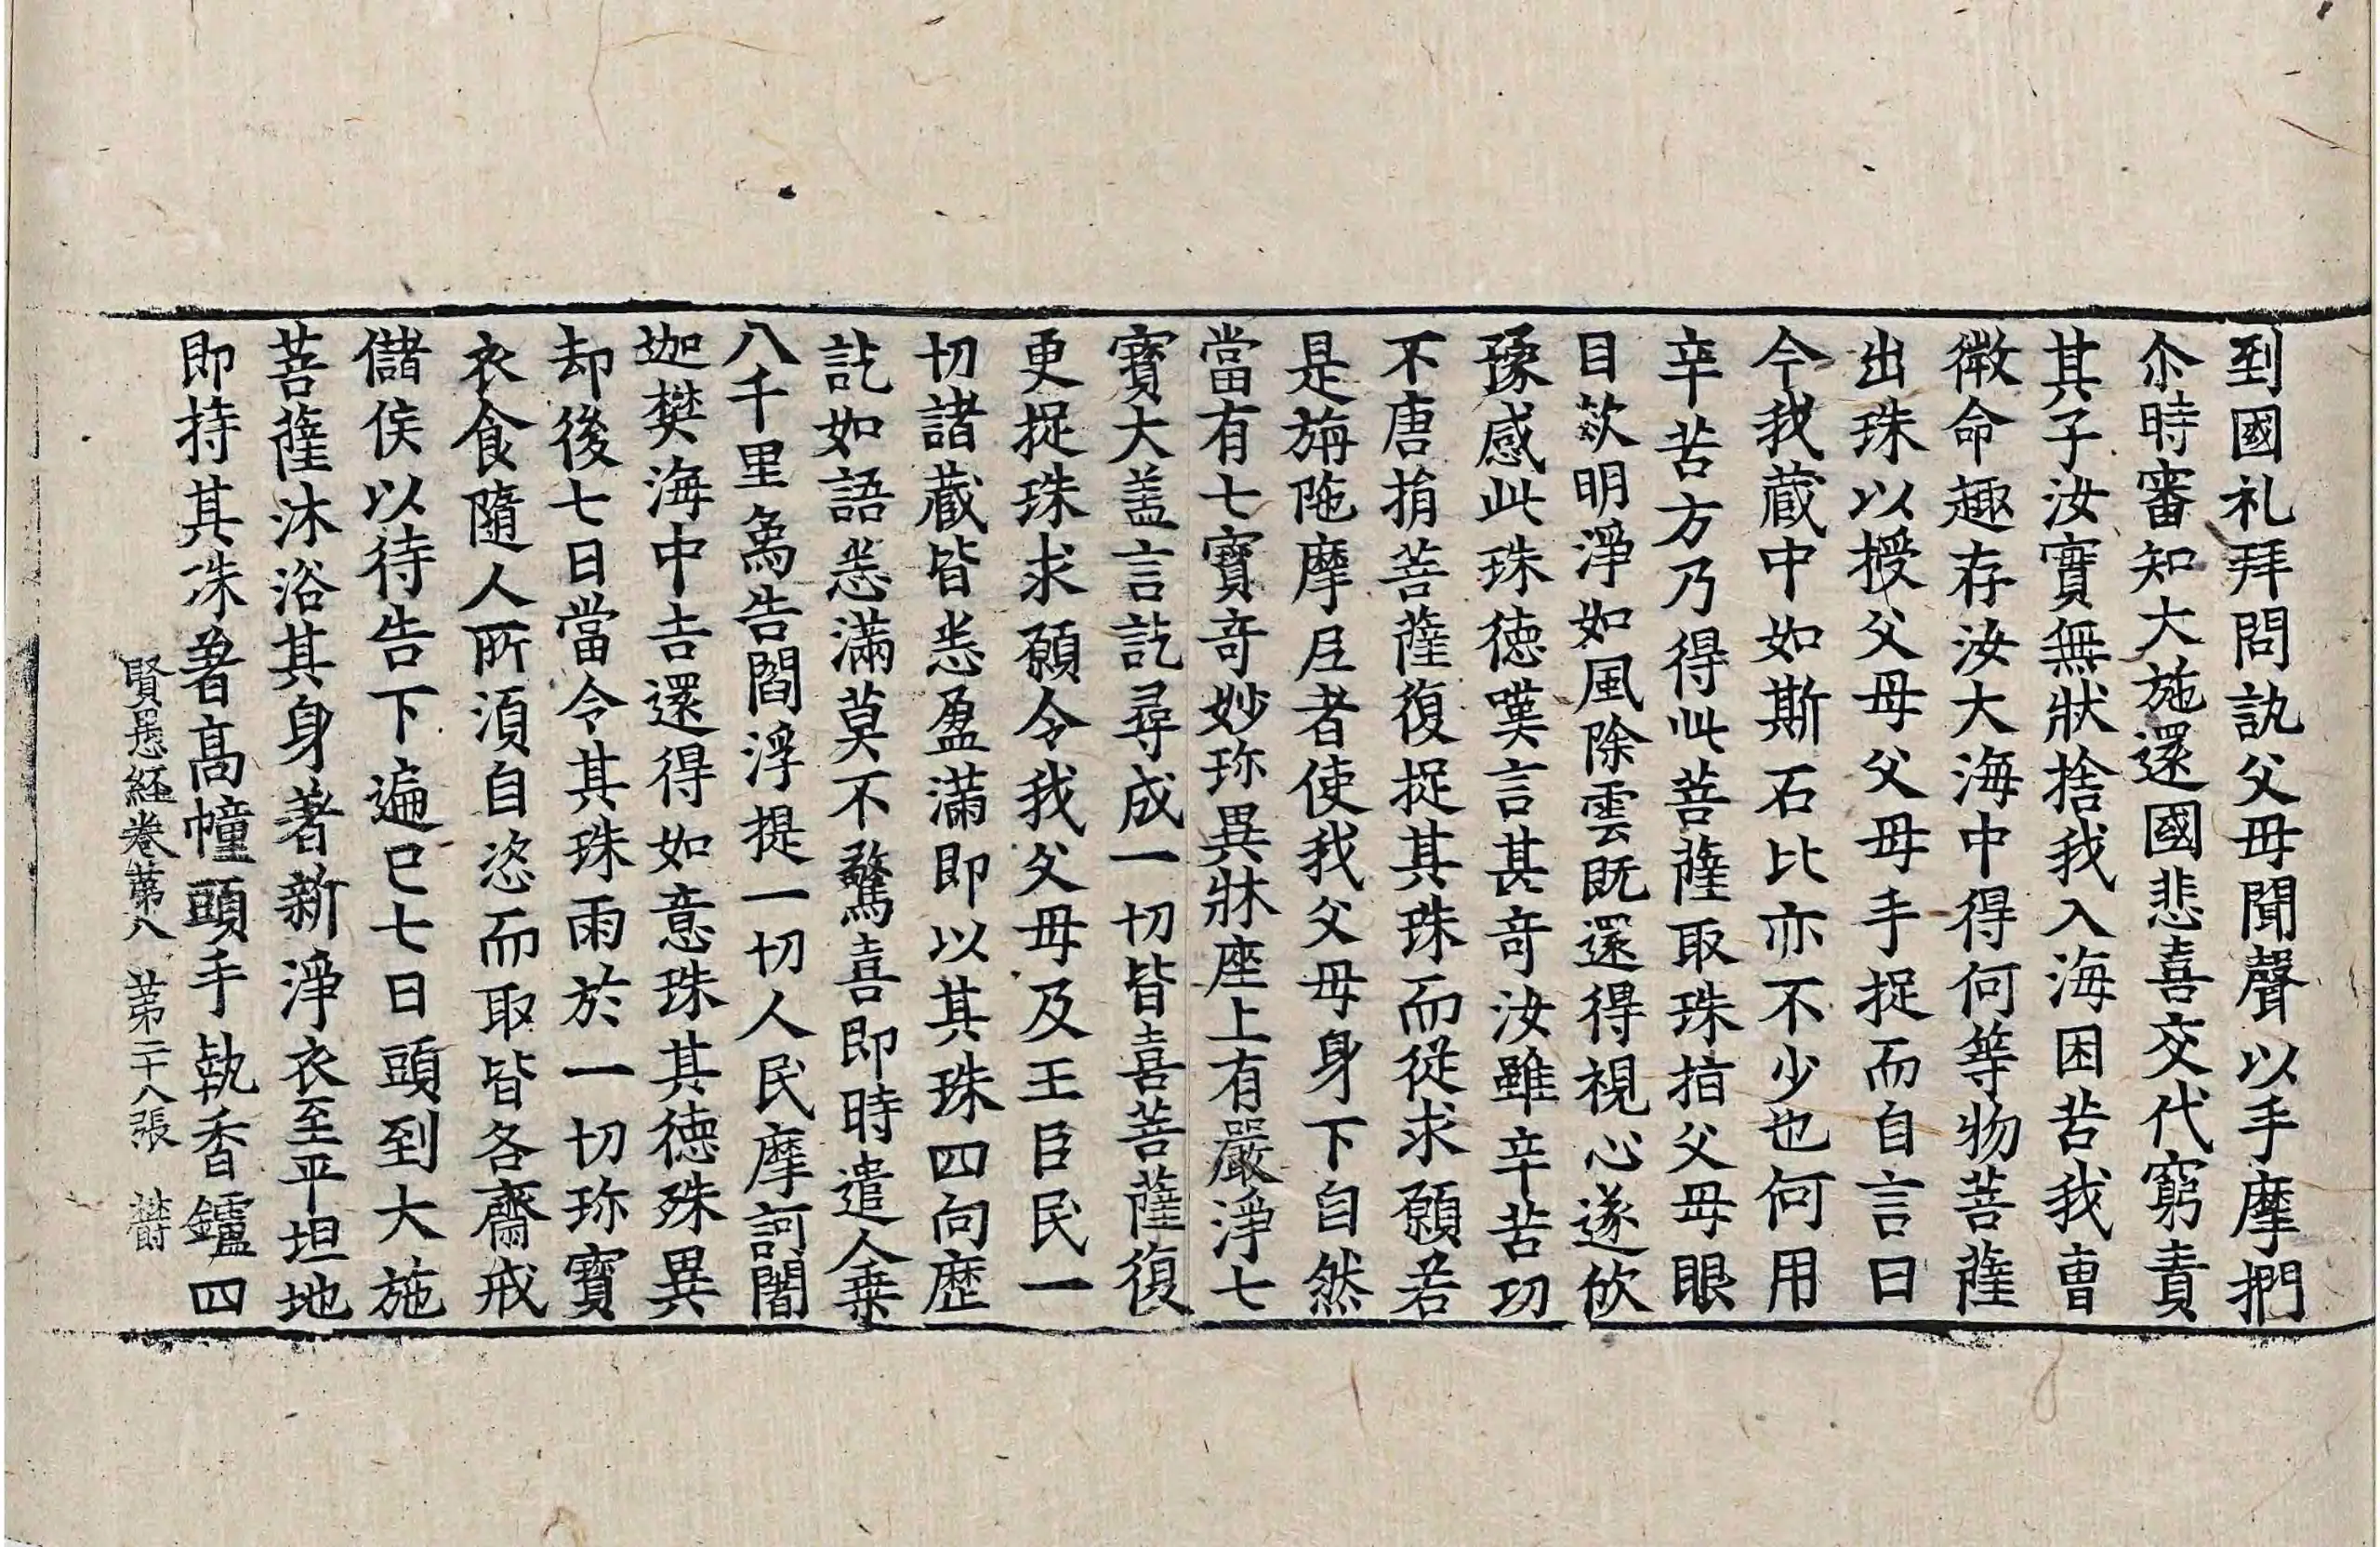 到國礼拜問訊父母聞聲以手摩捫
尒時審知大施還國悲喜交代窮責
其子汝實無狀捨我入海困苦我曹
微命趣存汝大海中得何等物菩薩
出珠以授父母父母手捉而自言曰
今我藏中如斯石比亦不少也何用
辛苦方乃得此菩薩取珠指父母眼
目欻明淨如風除雲既還得視心遂攸
豫感此珠德嘆言甚奇汝雖辛苦功
不唐捐菩薩復捉其珠而從求願若
是旃陁摩尼者使我父母身下自然
當有七寶奇妙珎異牀座上有嚴淨七
寶大盖言訖尋成一切皆喜菩薩復
更捉珠求願令我父母及王臣民一
切諸藏皆悉盈滿即以其珠四向歷
訖如語悉滿莫不驚喜即時遣人乗
八千里象告閻浮提一切人民摩訶闍
迦樊海中吉還得如意珠其德殊異
却後七日當令其珠雨於一切珎寶
衣食隨人所須自恣而取皆各齋戒
儲侯以待告下遍已七日頭到大施
菩薩沐浴其身著新淨衣至平坦地
即持其珠著高幢頭手執香鑪四
賢愚經卷第八 第二十八張 欝